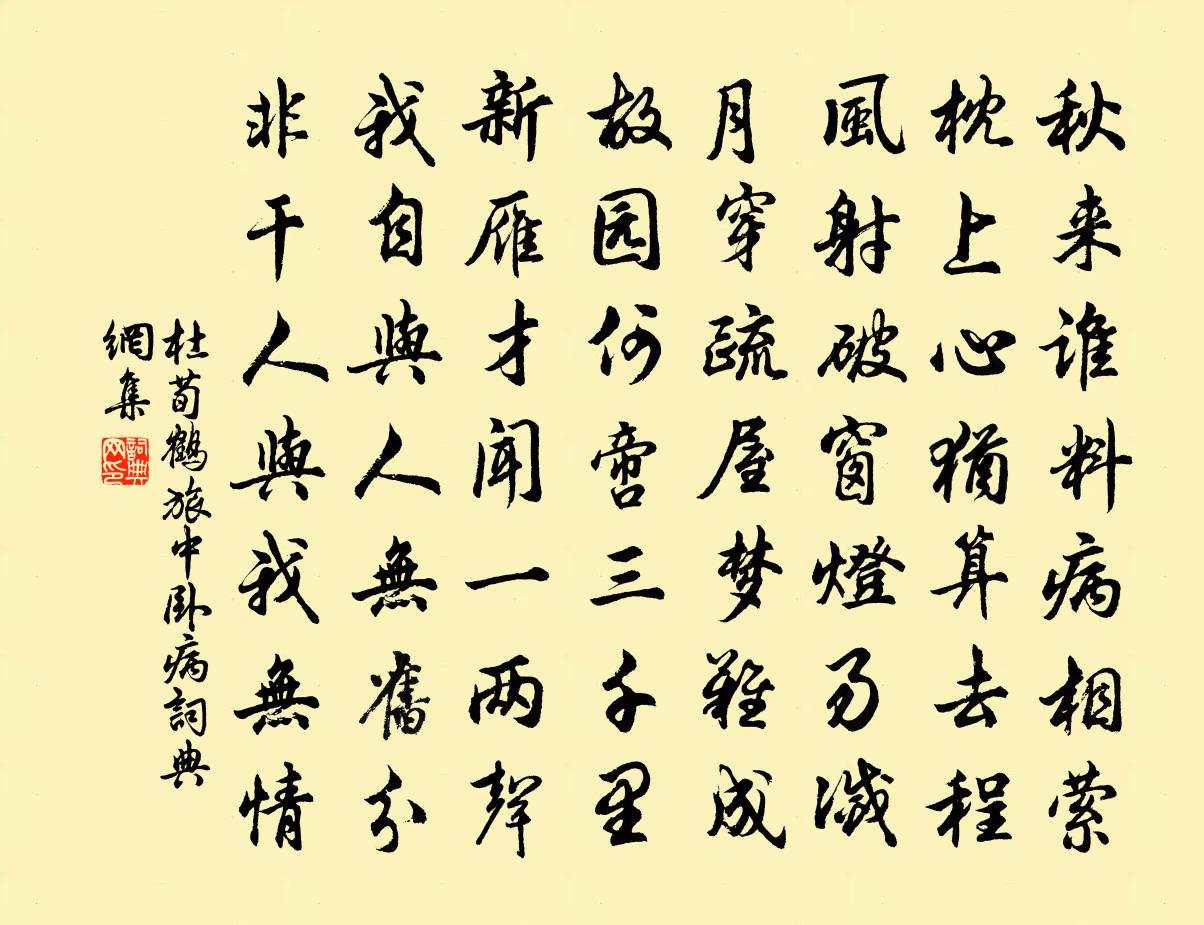 秋来谁料病相萦
枕上心猶算去程
風射破窗燈易滅
月穿疏屋梦難成
故园何啻三千里
新雁才聞一两聲
我自與人無舊分
非干人與我無情
杜荀鶴旅中卧病詞典
網集
詞典
网印